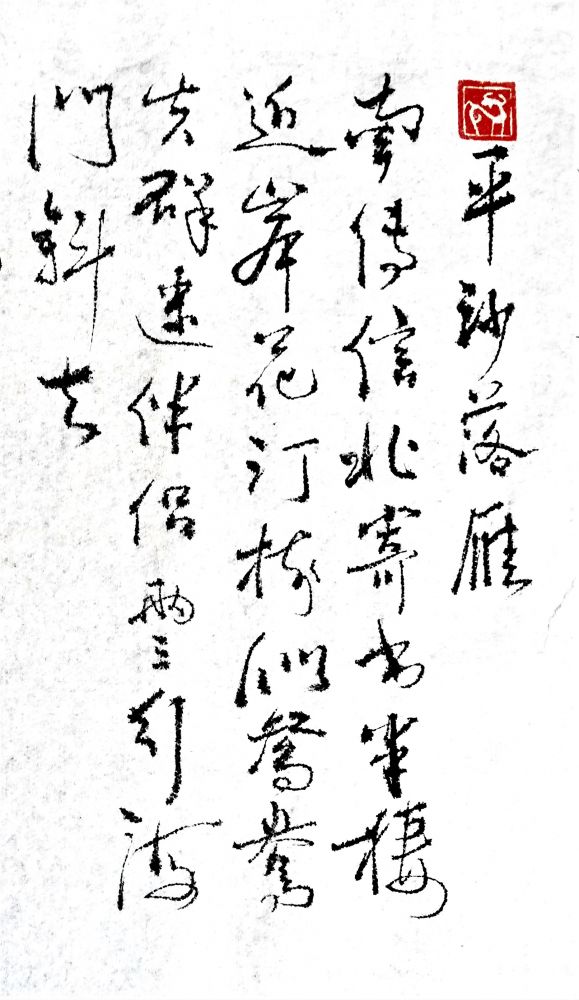 平沙落雁
南傳信北寄书半棲
近岸花汀樹似鴛鴦
失群迷伴侶兩三行海
門斜去